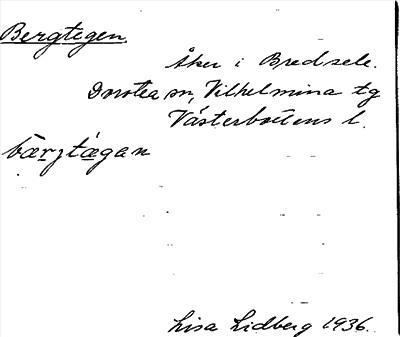 Bergtegen.
Åker i Bredsele.
Dorotea sn, Vilhelmina tg
Västerbottens l.
bärjtägan
Lisa Lidberg 1936.